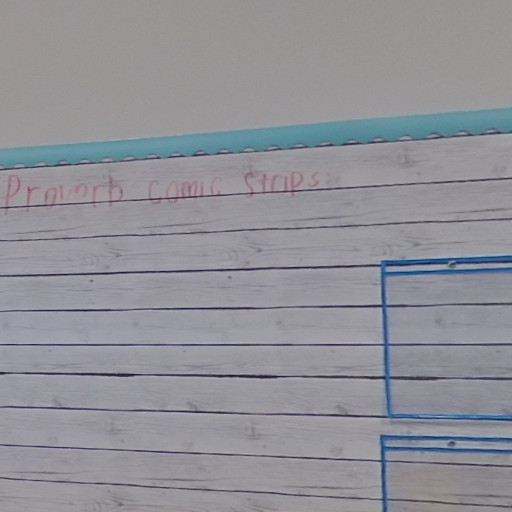 Proverb comic strips